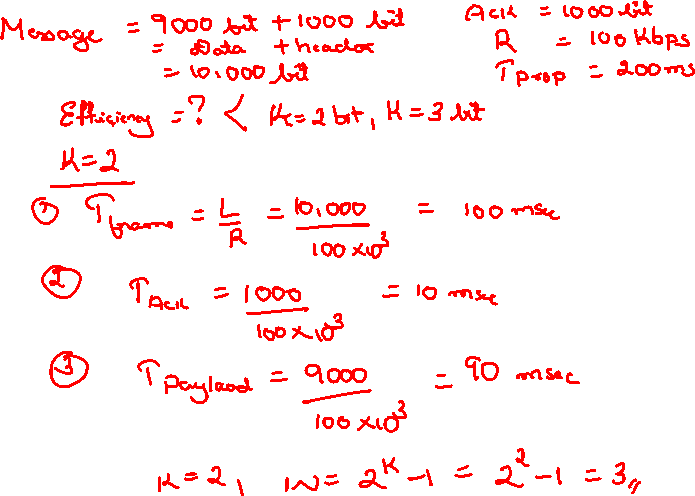 Message = 9000 bit + 1000 bit
= Data + header
= 10,000 bit
Ack = 1000 bit
R = 100 Kbps
Tprop = 200 ms
Efficiency = ? < K = 2 bit, K = 3 bit
K = 2
① Tframe = L/R = 10,000 / 100 × 10³ = 100 msec
② TAck = 1000 / 100 × 10³ = 10 msec
③ TPayload = 9000 / 100 × 10³ = 90 msec
K = 2, W = 2^K - 1 = 2² - 1 = 3,,